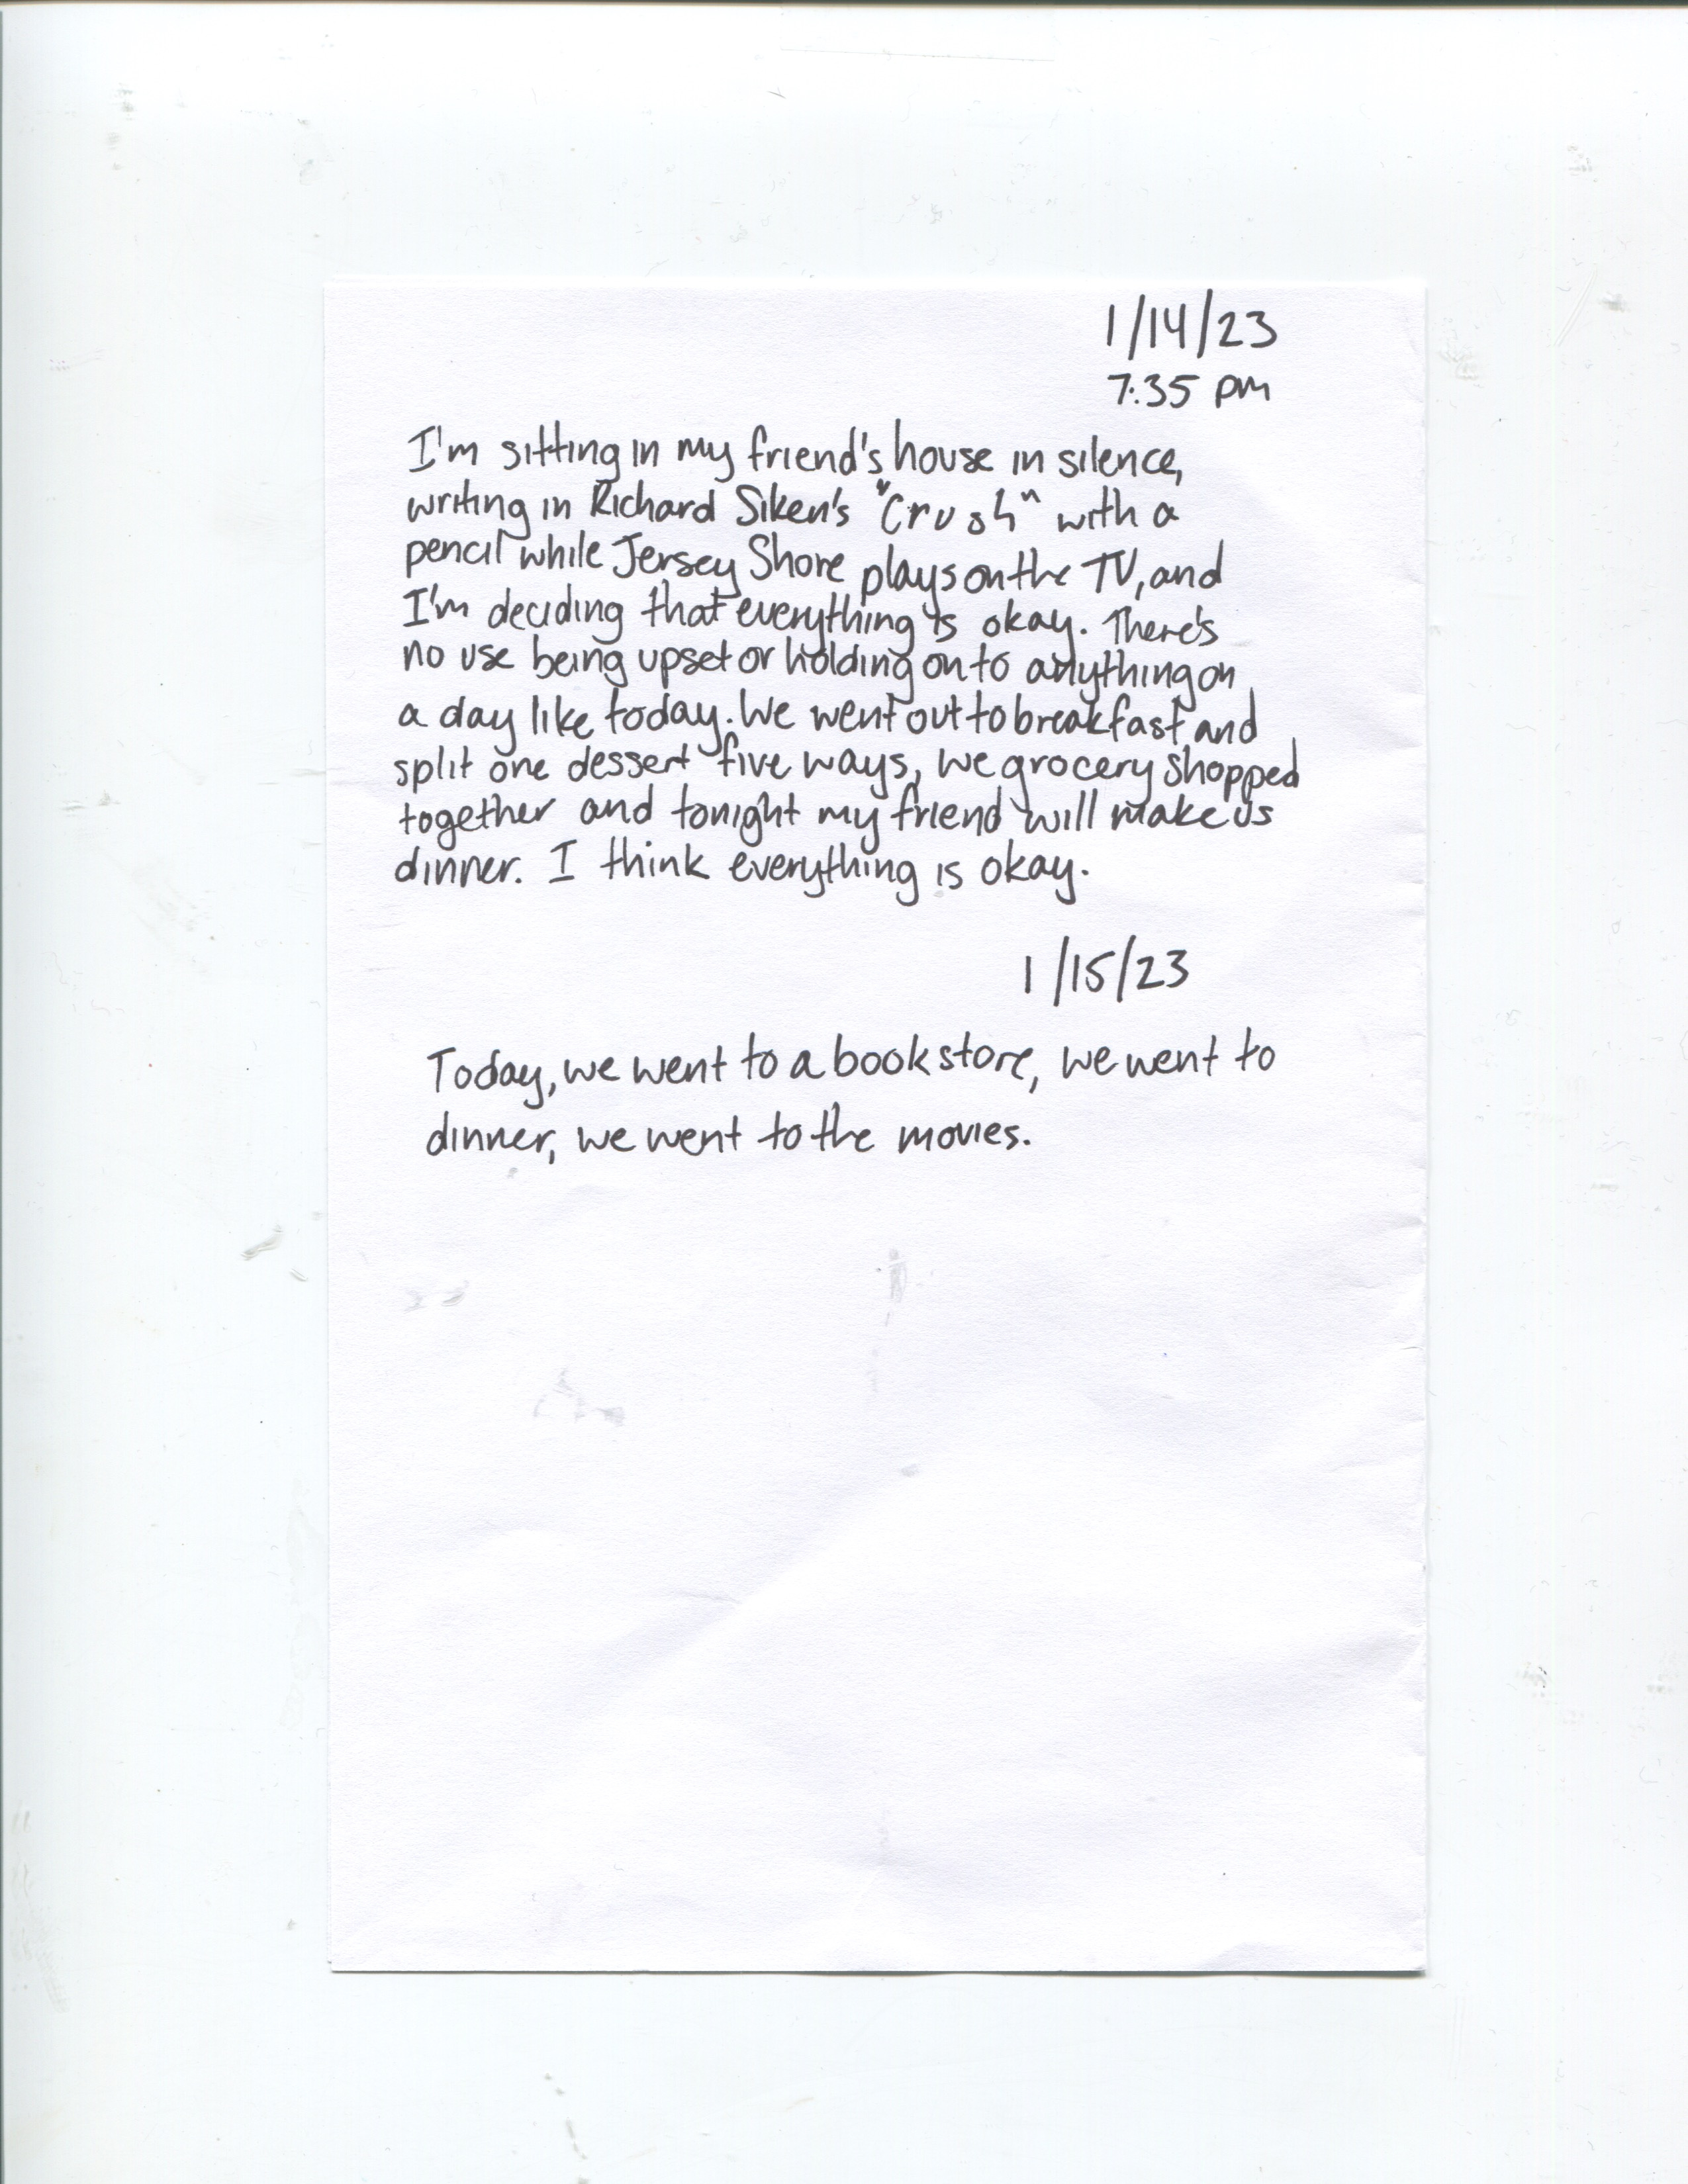 1/14/23
7:35 pm
I'm sitting in my friend's house in silence,
writing in Richard Siken's "Crush" with a
pencil while Jersey Shore plays on the TV, and
I'm deciding that everything is okay. There's
no use being upset or holding on to anything on
a day like today. We went out to breakfast and
split one dessert five ways, we grocery shopped
together and tonight my friend will make us
dinner. I think everything is okay.
1/15/23
Today, we went to a bookstore, we went to
dinner, we went to the movies.